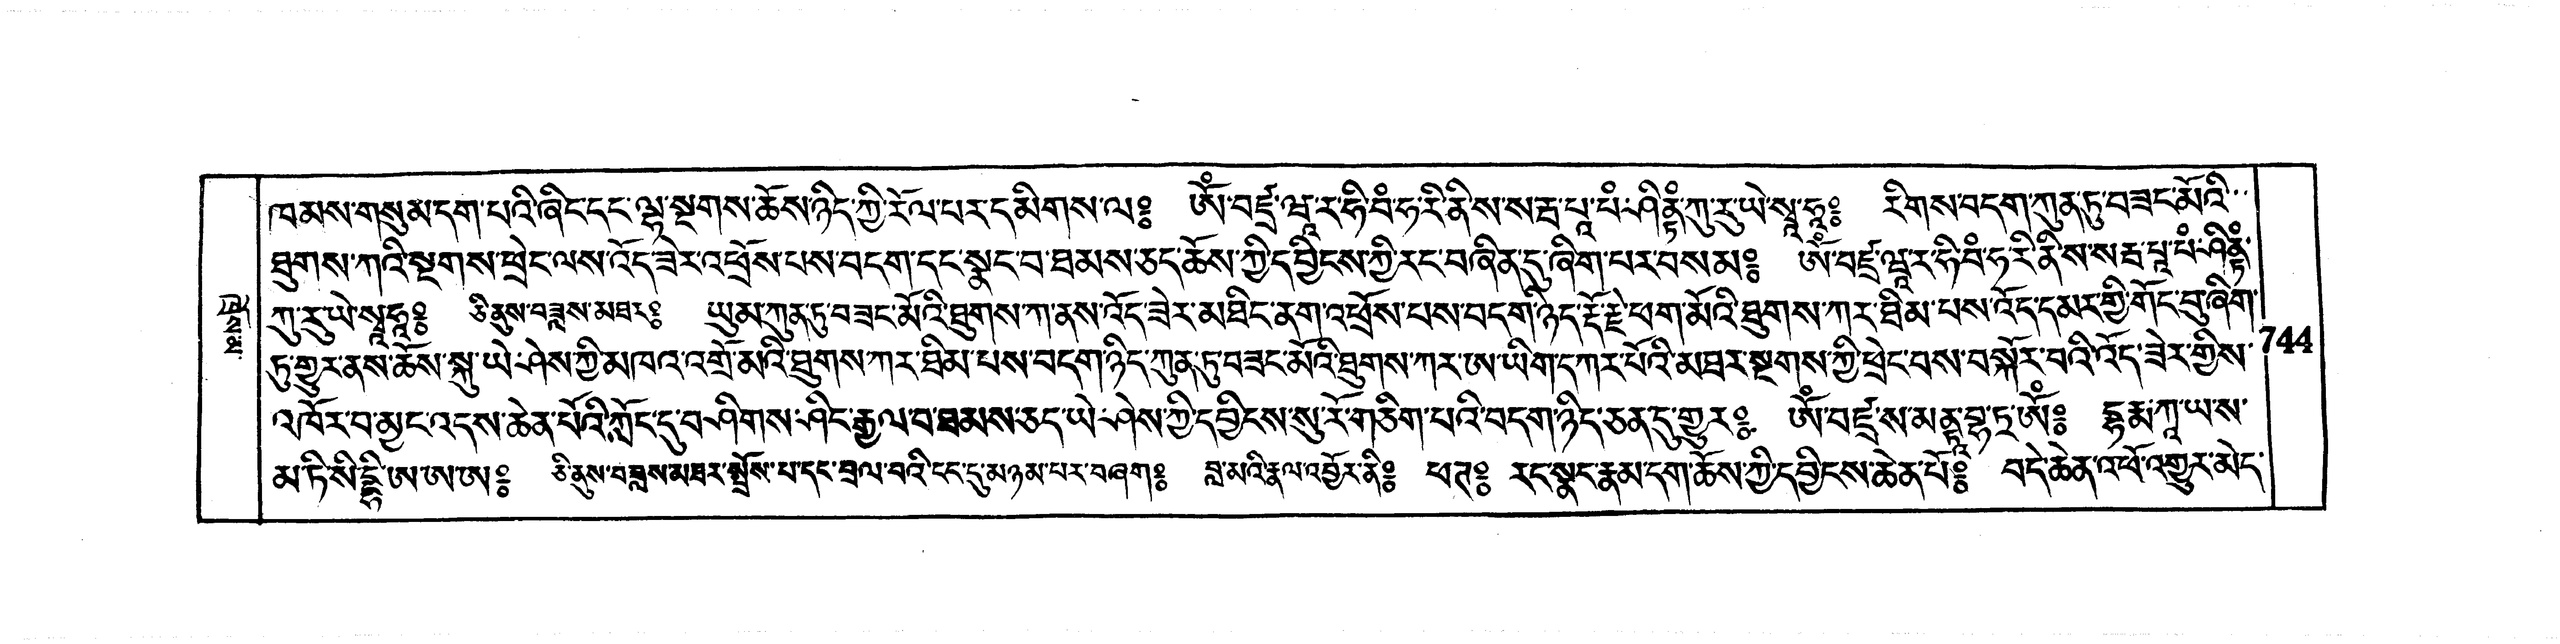 ཁམས་གསུམ་དག་པའི་ཞིང་དང་ལྷ་སྔགས་ཆོས་ཉིད་ཀྱི་རོལ་པར་དམིགས་ལ༔ ཨོཾ་བཛྲ་ཝཱ་ར་ཧི་བཾ་ཧ་རི་ནི་ས་སརྦ་པཱ་པཾ་ཤིནྟཾ་ཀུ་རུ་ཡེ་སྭཱ་ཧཱ༔ རིགས་བདག་ཀུན་ཏུ་བཟང་མོའི་
ཐུགས་ཀའི་སྔགས་ཕྲེང་ལས་འོད་ཟེར་འཕྲོས་པས་བདག་དང་སྣང་བ་ཐམས་ཅད་ཆོས་ཀྱི་དབྱིངས་ཀྱི་རང་བཞིན་དུ་ཞིག་པར་བསམ༔ ཨོཾ་བཛྲ་ཝཱ་ར་ཧི་བཾ་ཧ་རི་ནི་ས་སརྦ་པཱ་པཾ་ཤིནྟཾ་
ཀུ་རུ་ཡེ་སྭཱ་ཧཱ༔ ཅི་ནུས་བཟླས་མཐར༔ ཡུམ་ཀུན་ཏུ་བཟང་མོའི་ཐུགས་ཀ་ནས་འོད་ཟེར་མཐིང་ནག་འཕྲོས་པས་བདག་ཉིད་རྡོ་རྗེ་ཕག་མོའི་ཐུགས་ཀར་ཐིམ་པས་འོད་དམར་གྱི་གོང་བུ་ཞིག་
ཏུ་གྱུར་ནས་ཆོས་སྐུ་ཡེ་ཤེས་ཀྱི་མཁའ་འགྲོ་མའི་ཐུགས་ཀར་ཐིམ་པས་བདག་ཉིད་ཀུན་ཏུ་བཟང་མོའི་ཐུགས་ཀར་ཨ་ཡིག་དཀར་པོའི་མཐར་སྔགས་ཀྱི་ཕྲེང་བས་བསྐོར་བའི་འོད་ཟེར་གྱིས་
འཁོར་བ་མྱང་འདས་ཆེན་པོའི་ཀློང་དུ་བཤིགས་ཤིང་རྒྱལ་བ་ཐམས་ཅད་ཡེ་ཤེས་ཀྱི་དབྱིངས་སུ་རོ་གཅིག་པའི་བདག་ཉིད་ཅན་དུ་གྱུར༔ ཨོཾ་བཛྲ་ས་མནྟ་བྷ་ཏྲ་ཨོཾ༔ དྷརྨ་ཀཱ་ཡ་ས་
མ་ཏི་སིདྡྷི་ཨ་ཨ་ཨ༔ ཅི་ནུས་བཟླས་མཐར་སྤྲོས་པ་དང་བྲལ་བའི་ངང་དུ་མཉམ་པར་བཞག༔ བླ་མའི་རྣལ་འབྱོར་ནི༔ ཕཊ༔ རང་སྣང་རྣམ་དག་ཆོས་ཀྱི་དབྱིངས་ཆེན་པོ༔ བདེ་ཆེན་འཕོ་འགྱུར་མེད་
744